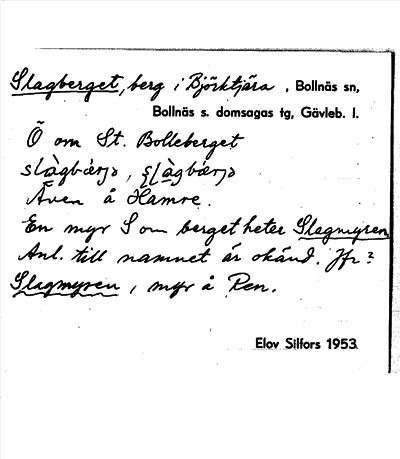 Slagberget, berg i Björktjära, Bollnäs sn,
Bollnäs s. domsagas tg, Gävleb. l.
Ö om St. Bolleberget
slàgbærjə, ʂɭàgbærjə
Även å Hamre.
En myr S om berget heter Slagmyren
Anl. till namnet är okänd. Jfr?
Slagmyren, myr å Ren.
Elov Silfors 1953